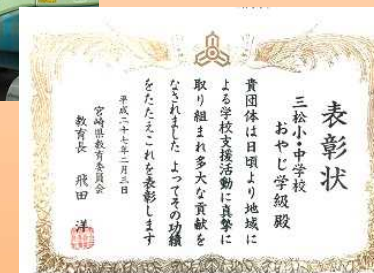 表彰状
三松小・中学校
おやじ学級殿
貴団体は日頃より地域に
よる学校支援活動に真摯に
取り組まれ多大な貢献を
なされました よってその功績
をたたえこれを表彰します
平成二十七年二月三日
宮崎県教育委員会
教育長 飛田 洋